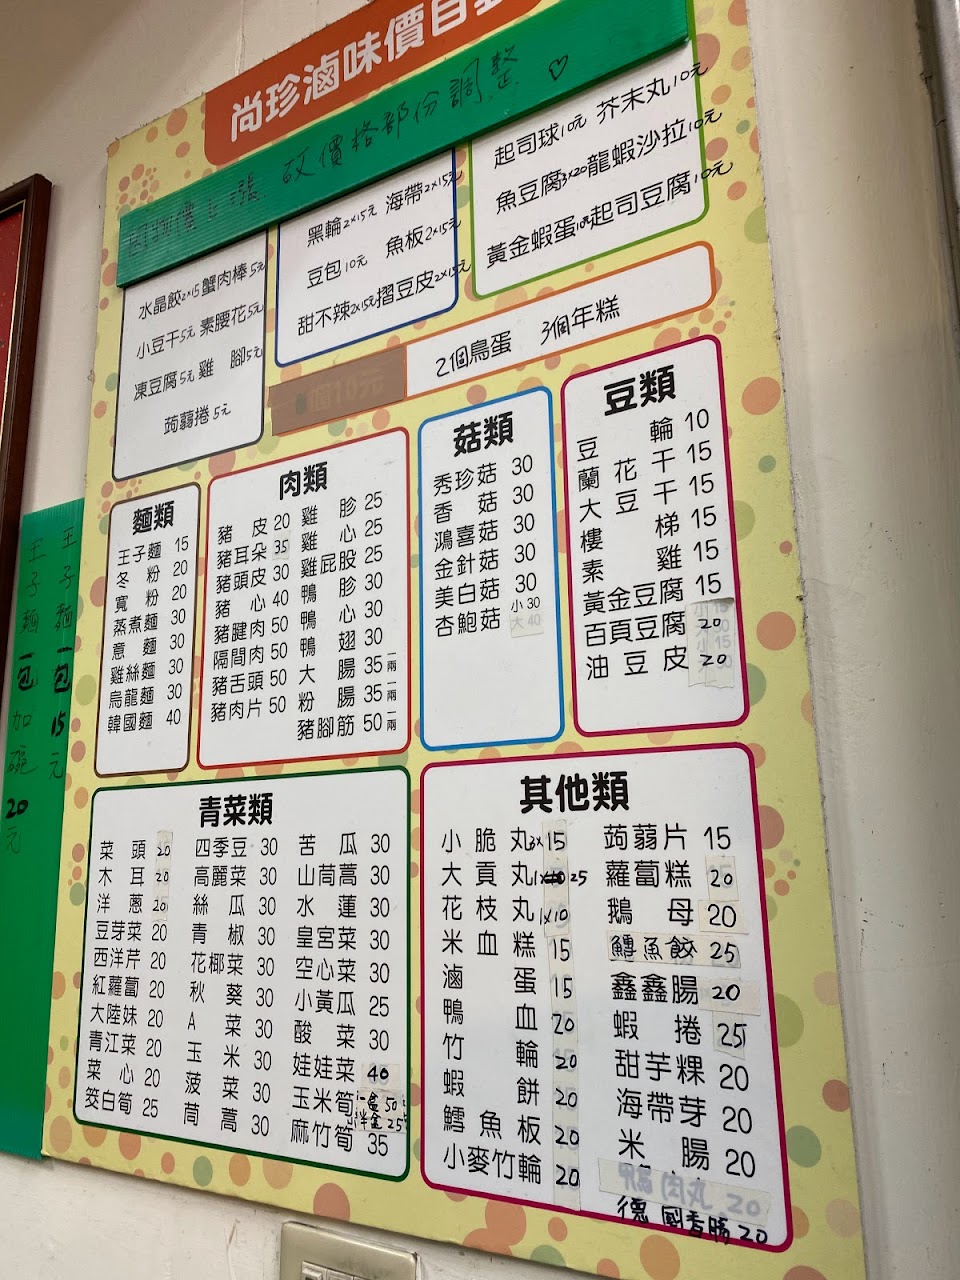 尚珍滷味價目表
故價格部份調整♡
水晶餃2×15 蟹肉棒5元
小豆干5元 素腰花5元
凍豆腐5元 雞腳5元
蒟蒻捲5元
黑輪2×15元 海帶2×15元
豆包10元 魚板2×15元
甜不辣2×15元 摺豆皮2×15元
起司球10元 芥末丸10元
魚豆腐3×20 龍蝦沙拉10元
黃金蝦蛋10元 起司豆腐10元
個10元
2個鳥蛋 3個年糕
麵類
王子麵 15
冬粉 20
寬粉 20
蒸煮麵 30
意麵 30
雞絲麵 30
烏龍麵 30
韓國麵 40
肉類
豬皮 20 雞胗 25
豬耳朵 35 雞心 25
豬頭皮 30 雞屁股 25
豬心 40 鴨胗 30
豬腱肉 50 鴨心 30
隔間肉 50 鴨翅 30
豬舌頭 50 大腸 35 一兩
豬肉片 50 粉腸 35 一兩
豬腳筋 50 一兩
菇類
秀珍菇 30
香菇 30
鴻喜菇 30
金針菇 30
美白菇 30
杏鮑菇 小30 大40
豆類
豆輪 10
蘭花干 15
大豆干 15
樓梯 15
素雞 15
黃金豆腐 15
百頁豆腐 20
油豆皮 20
青菜類
菜頭 20 四季豆 30 苦瓜 30
木耳 20 高麗菜 30 山茼蒿 30
洋蔥 20 絲瓜 30 水蓮 30
豆芽菜 20 青椒 30 皇宮菜 30
西洋芹 20 花椰菜 30 空心菜 30
紅蘿蔔 20 秋葵 30 小黃瓜 25
大陸妹 20 A菜 30 酸菜 30
青江菜 20 玉米 30 娃娃菜 40
菜心 20 菠菜 30 玉米筍 一盒50 半盒25
筊白筍 25 茼蒿 30 麻竹筍 35
其他類
小脆丸3×15 蒟蒻片 15
大貢丸 25 蘿蔔糕 20
花枝丸1×10 鵝母 20
米血糕 15 鱈魚餃 25
滷蛋 15 鑫鑫腸 20
鴨血 20 蝦捲 25
竹輪 20 甜芋粿 20
蝦餅 20 海帶芽 20
鱈魚板 20 米腸 20
小麥竹輪 20 鴨肉丸 20
德國香腸 20
王子麵一包15元
王子麵一包加碗20元